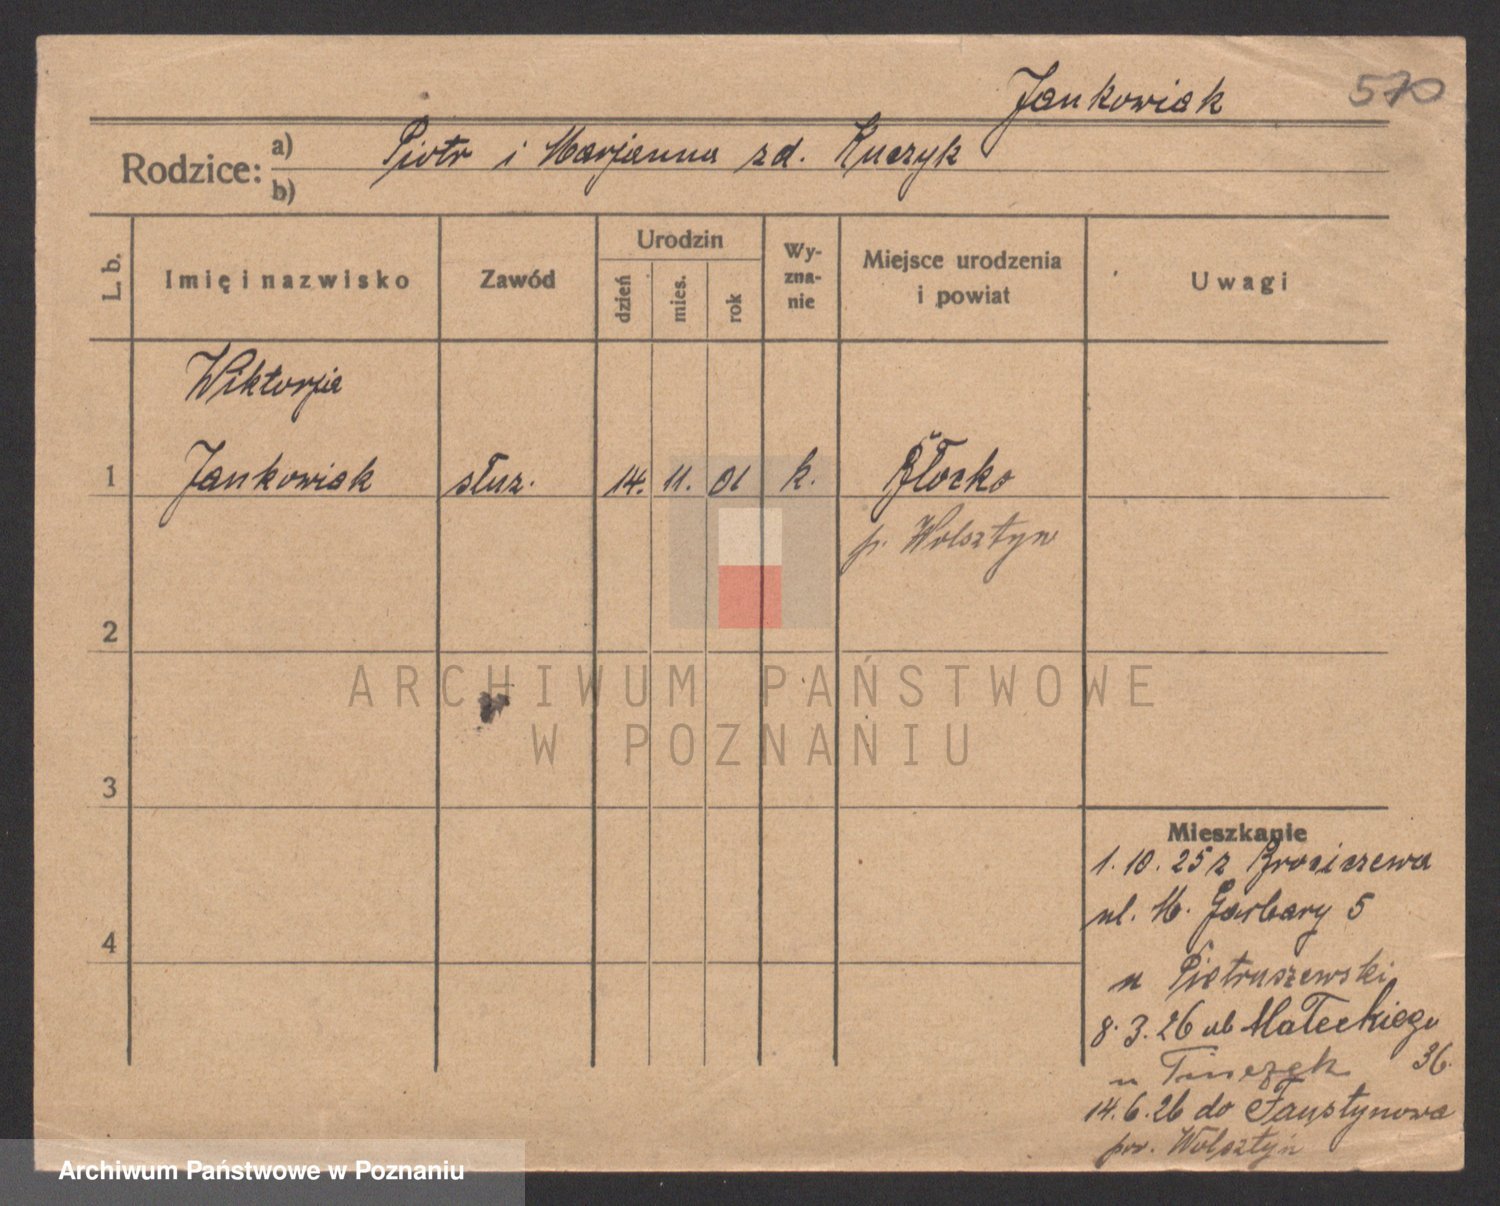 Jankowiak 570
Rodzice: a) Piotr i Marjanna zd. Kuczyk
b)
L. b. Imię i nazwisko Zawód Urodzin dzień mies. rok Wy-zna-nie Miejsce urodzenia i powiat Uwagi
Wiktorja
1 Jankowiak służ. 14. 11. 01 k. Błocko
p. Wolsztyn
2
ARCHIWUM PAŃSTWOWE
W POZNANIU
3
Mieszkanie
1.10.25 z Brociszewa
ul. M. Garbary 5
4
u Pietruszewski
8.3.26 ul Małeckiego
36.
u
14.6.26 do Faustynowa
pow. Wolsztyn
Archiwum Państwowe w Poznaniu